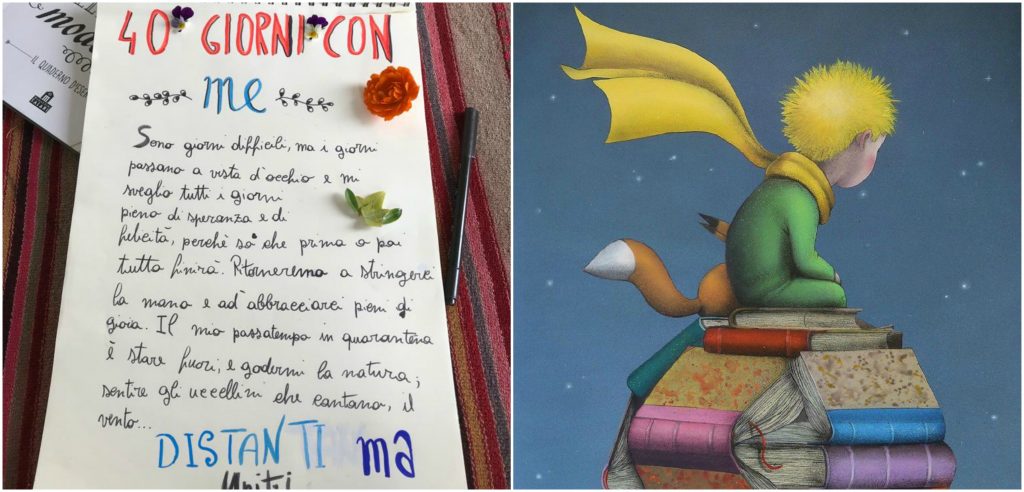 40 GIORNI CON
me
Sono giorni difficili, ma i giorni
passano a vista d'occhio e mi
sveglio tutti i giorni
pieno di speranza e di
felicità, perchè sò che prima o poi
tutto finirà. Ritorneremo a stringerci
la mano e ad abbracciarci pieni di
gioia. Il mio passatempo in quarantena
è stare fuori, e godermi la natura;
sentire gli uccellini che cantano, il
vento...
DISTANTI ma
Uniti
IL QUADERNO D'ESE